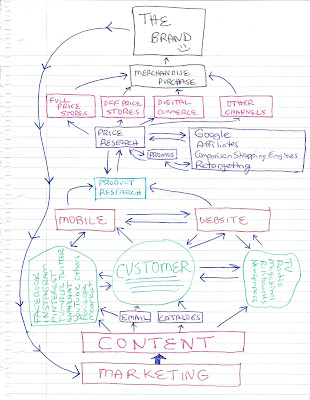 THE
BRAND
MERCHANDISE
PURCHASE
FULL
PRICE
STORES
OFF PRICE
STORES
DIGITAL
COMMERCE
OTHER
CHANNELS
PRICE
RESEARCH
PROMOS
Google
Affiliates
Comparison Shopping Engines
Retargeting
PRODUCT
RESEARCH
MOBILE
WEBSITE
FACEBOOK
INSTAGRAM
PINTEREST
TUMBLR TWITTER
YouTube others
CUSTOMER
TV
Radio
Magazines
Billboards
EMAIL
CATALOGS
CONTENT
MARKETING